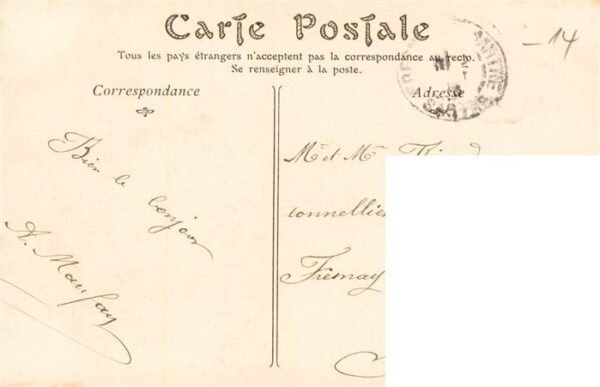 Carte Postale
Tous les pays étrangers n'acceptent pas la correspondance au recto.
Se renseigner à la poste.
Correspondance
Adresse
-14
Bien le bonjour
A.
Mr et Mme
tonnellier
Fresnay